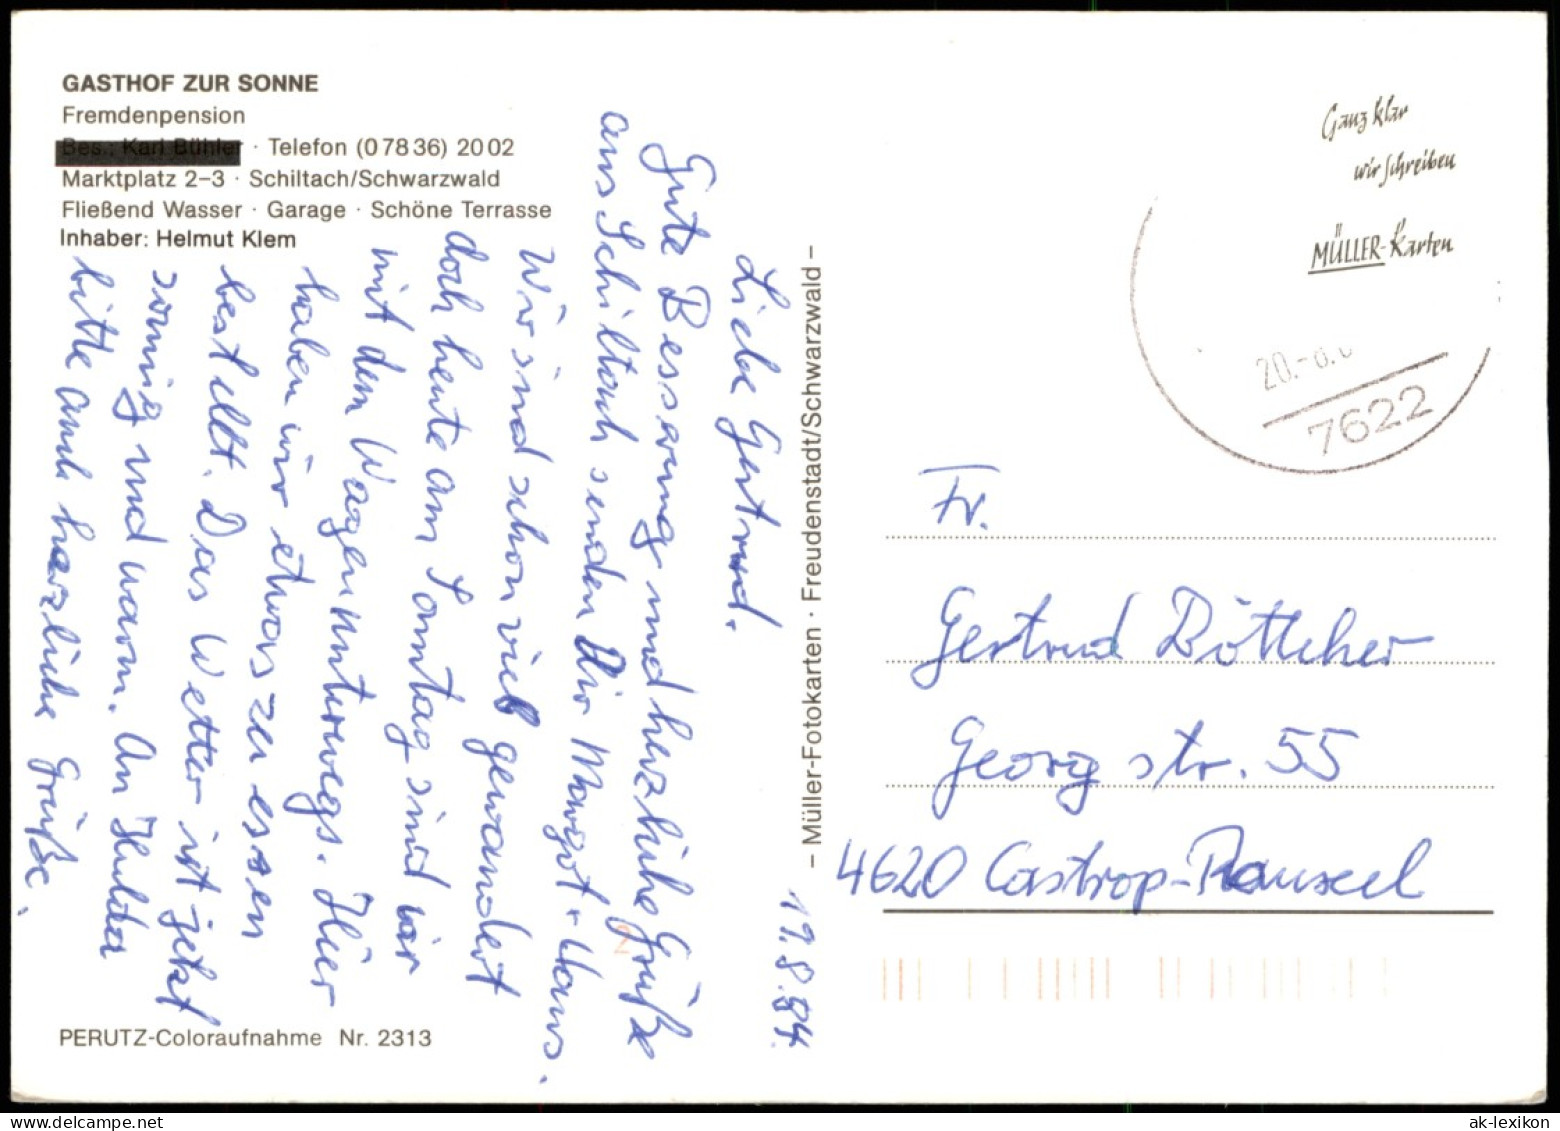 GASTHOF ZUR SONNE
Fremdenpension
Bes.: Karl Bühler · Telefon (07836) 2002
Marktplatz 2–3 · Schiltach/Schwarzwald
Fließend Wasser · Garage · Schöne Terrasse
Inhaber: Helmut Klem
19.8.84.
Liebe Gertrud.
Gute Besserung und herzliche Grüße
aus Schiltach senden Dir Margot u. Hans.
Wir sind schon viel gewandert
doch heute am Sonntag sind wir
mit dem Wagen unterwegs. Hier
haben wir etwas zu essen
bestellt. Das Wetter ist jetzt
sonnig und warm. An Hulda
bitte auch herzliche Grüße.
PERUTZ-Coloraufnahme Nr. 2313
– Müller-Fotokarten · Freudenstadt/Schwarzwald –
Ganz klar
wir schreiben
MÜLLER-Karten
20.-8.
7622
Fr.
Gertrud Böttcher
Georg str. 55
4620 Castrop-Rauxel
ak-lexikon